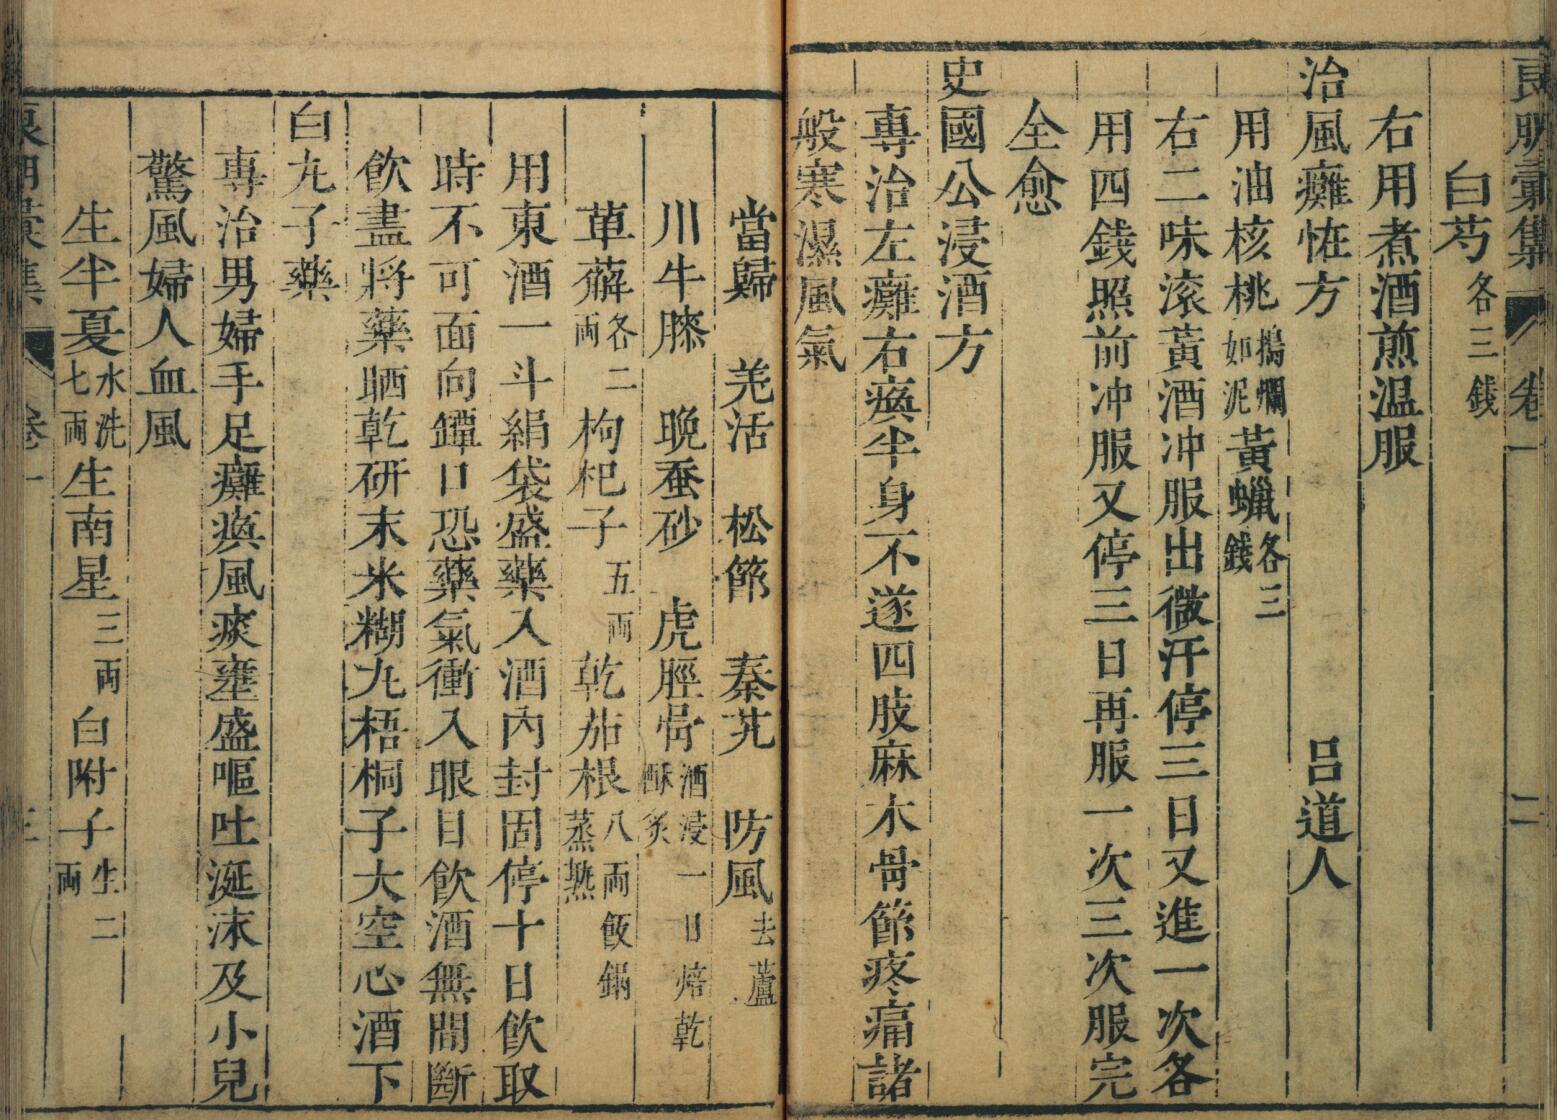 良朋彙集 卷一 二
白芍各三錢
右用煮酒煎温服
治風癱怪方 呂道人
用油核桃搗爛如泥黃蠟各三錢
右二味滚黃酒冲服出微汗停三日又進一次各
用四錢照前冲服又停三日再服一次三次服完
全愈
史國公浸酒方
專治左癱右瘓半身不遂四肢麻木骨節疼痛諸
般寒濕風氣
當歸 羌活 松節 秦艽 防風去蘆
川牛膝 晚蚕砂 虎脛骨酒浸一日焙乾酥炙
萆薢各二兩枸杞子五兩乾茄根八兩飯鍋蒸熟
用東酒一斗絹袋盛藥入酒內封固停十日飲取
時不可面向罈口恐藥氣衝入眼目飲酒無間斷
飲盡將藥晒乾研末米糊丸梧桐子大空心酒下
白丸子藥
專治男婦手足癱瘓風痰壅盛嘔吐涎沫及小兒
驚風婦人血風
生半夏水洗七兩生南星三兩白附子生二兩
良朋彙集 卷一 三